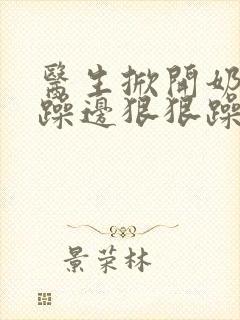 醫生掀開奶
躁邊狠狠躁
景荣林